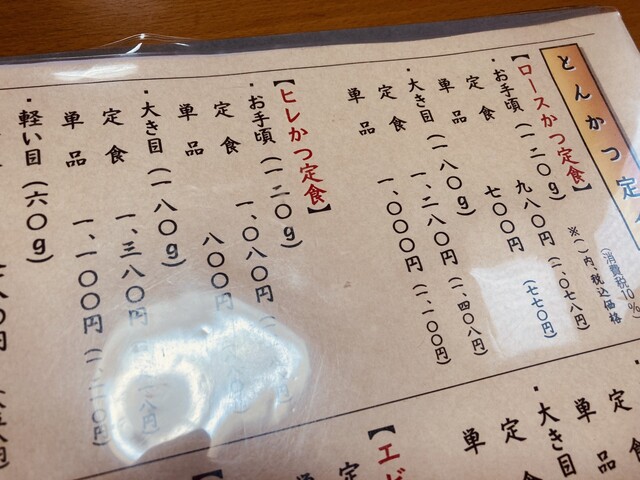 とんかつ定
(消費税10%)
※( )内、税込価格
【ロースかつ定食】
・お手頃(一二〇g)
定食 九八〇円(一、〇七八円)
単品 七〇〇円(七七〇円)
・大き目(一八〇g)
定食 一、二八〇円(一、四〇八円)
単品 一、〇〇〇円(一、一〇〇円)
【ヒレかつ定食】
・お手頃(一二〇g)
定食 一、〇八〇円
単品 八〇〇円
・大き目(一八〇g)
定食 一、三八〇円
単品 一、一〇〇円(一、二一〇円)
・軽い目(六〇g)
定食
単品
・大き目
定食
単品
【エビ
定
単